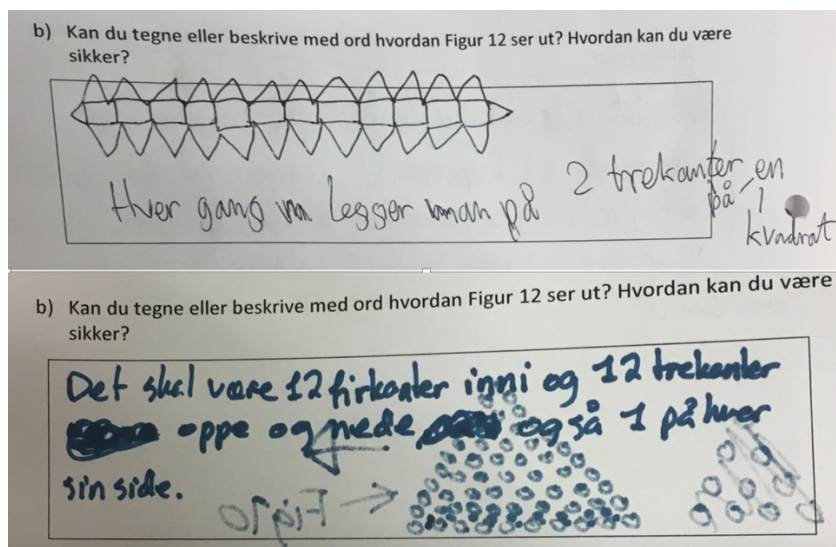 b) Kan du tegne eller beskrive med ord hvordan Figur 12 ser ut? Hvordan kan du være
sikker?
Hver gang legger man på 2 trekanter en
på 1
kvadrat
b) Kan du tegne eller beskrive med ord hvordan Figur 12 ser ut? Hvordan kan du være
sikker?
Det skal være 12 firkanter inni og 12 trekanter
oppe og nede og så 1 på hver
sin side.